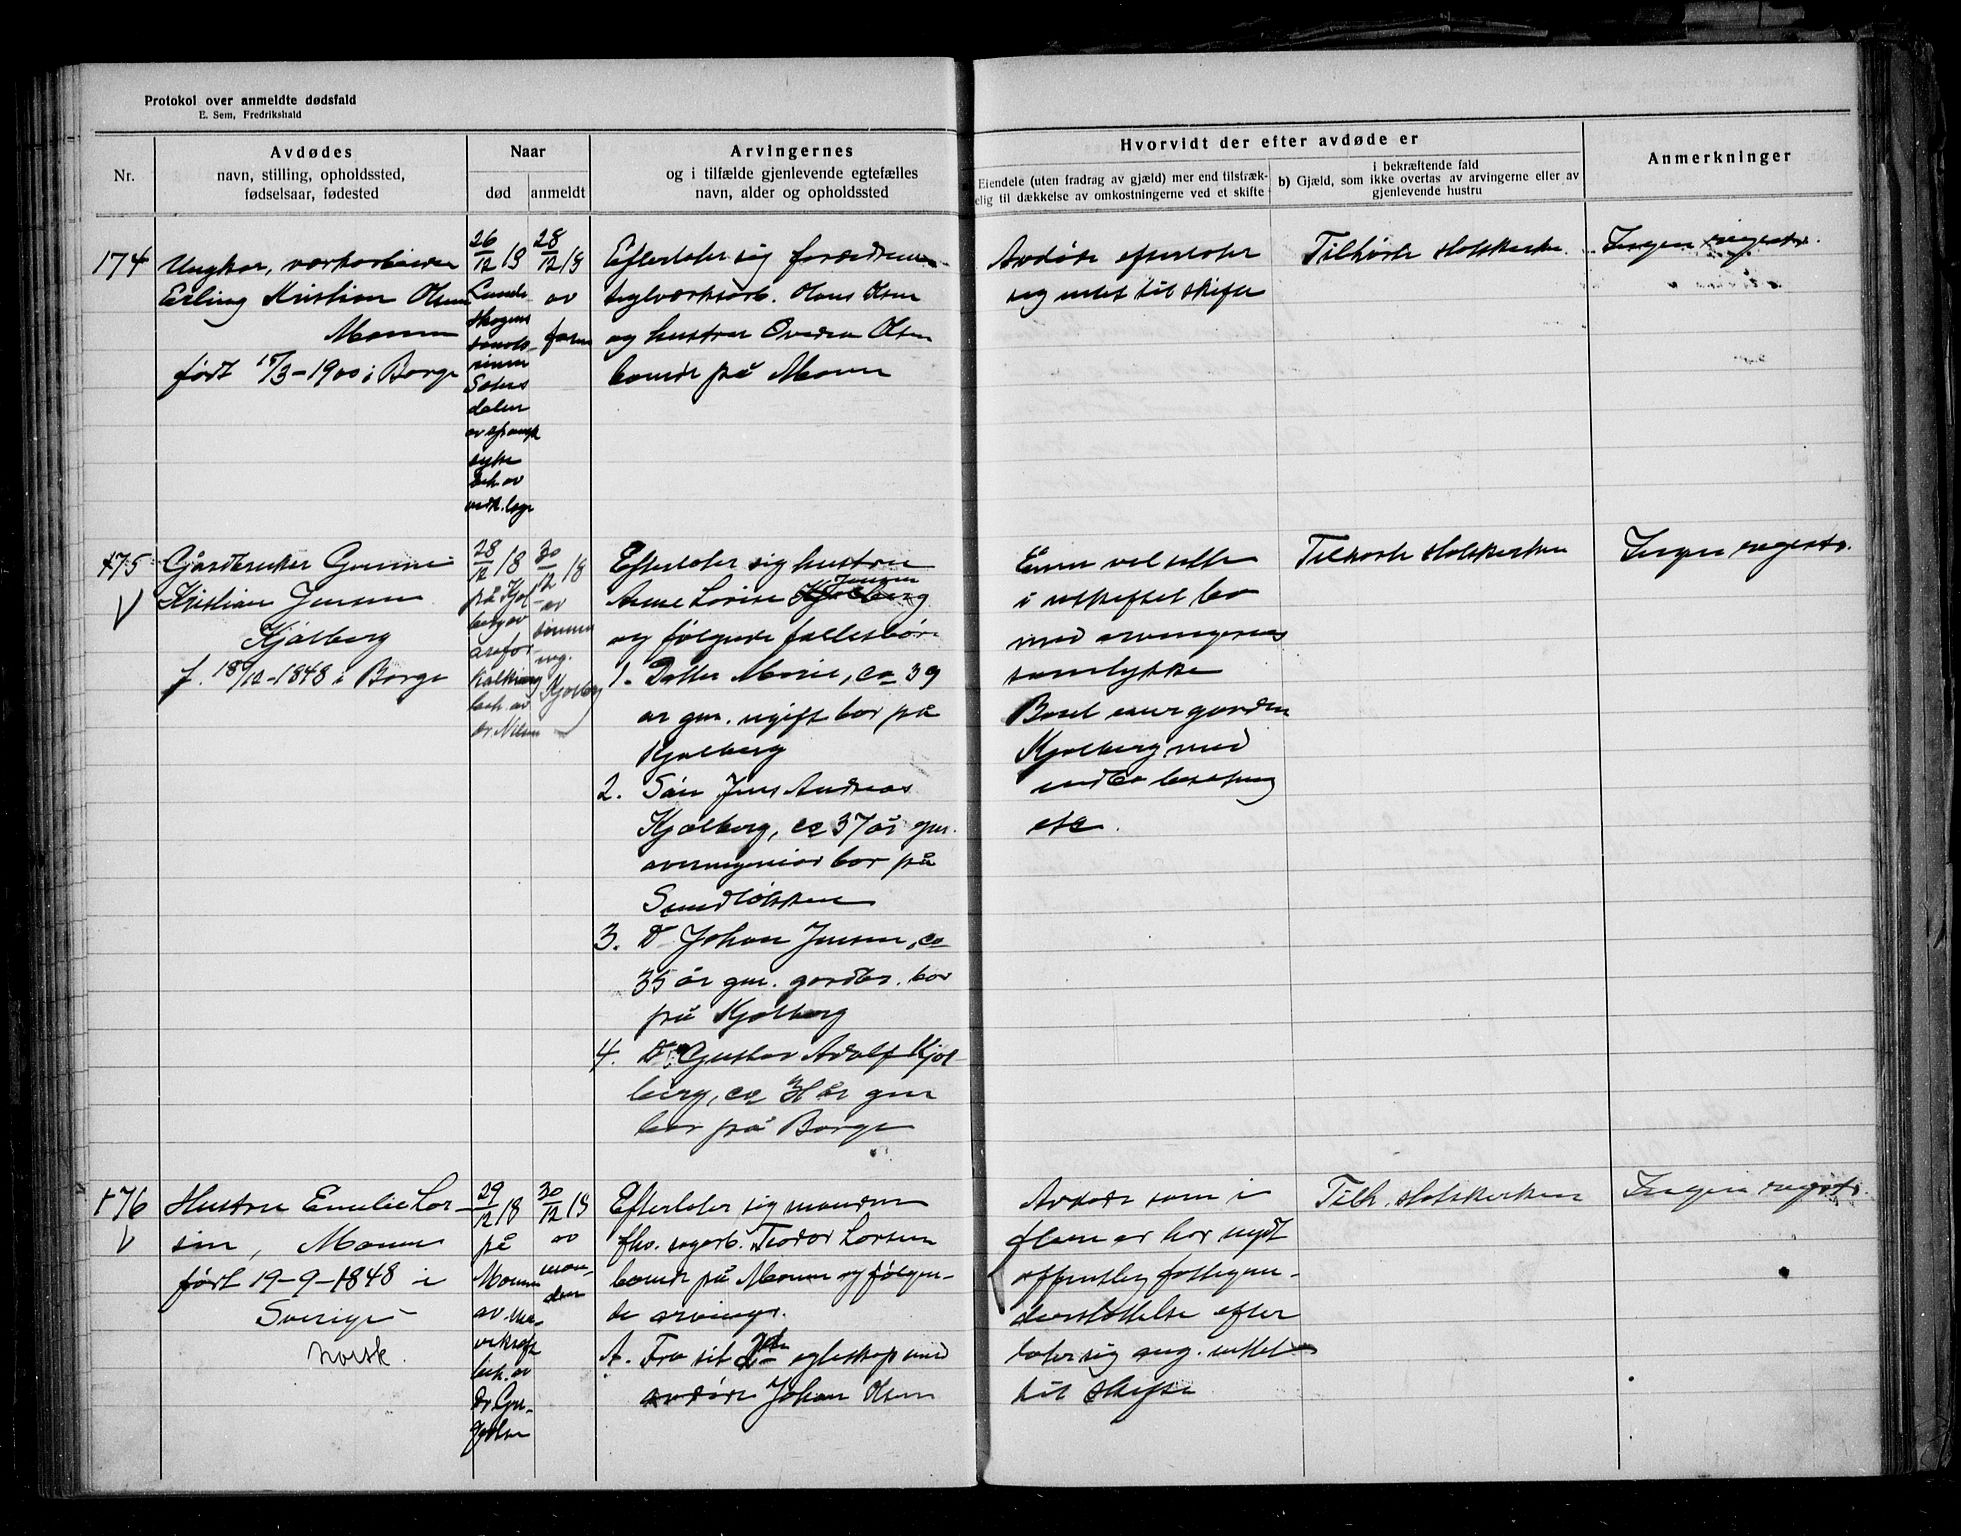 Protokol over anmeldte dødsfald
E. Sem, Fredrikshald
Nr.
Avdødes
navn, stilling, opholdssted,
fødselsaar, fødested
Naar
død
anmeldt
Arvingernes
og i tilfælde gjenlevende egtefælles
navn, alder og opholdssted
Hvorvidt der efter avdøde er
Eiendele (uten fradrag av gjæld) mer end tilstræk-
elig til dækkelse av omkostningerne ved et skifte
i bekræftende fald
b) Gjæld, som ikke overtas av arvingerne eller av
gjenlevende hustru
Anmerkninger
174
Ungkar,
Erling Kristian Olsen
Moum
født 17/3-1900 i Borge
26/12 18
Lunde-
skogens
Seters-
dalen
av spansk
syke
beh. av
28/12 18
av
faren
Efterlater sig forældrene
teglverksarb. Olaus Olsen
og hustru Olsen
boende på Moum
Avdøde efterlater
sig intet til skifte
Tilhørte statskirken.
Ingen registr.
175
Gårdbruker
Kristian Jensen
Kjølberg
f. 18/12-1848 i Borge
28/12 18
på Kjøl-
berg av
årefor-
kalkning
beh. av
dr. Nilsen
30/12 18
av
sønnen
ing.
Kjølberg
Efterlater sig hustru
Jensen
Anne Lovise Kjølberg
og følgende fællesbørn
1. Datter Marie, ca 39
år gm. ugift bor på
Kjølberg
2. Søn Jens Andreas
Kjølberg, ca 37 år gm.
overingeniør bor på
Sundløkken
3. Do Johan Jensen, ca
35 år gm. gårdbr. bor
på Kjølberg
4. Do Gustav Adolf Kjøl-
berg, ca år gm
bor på Borge
Enken vil sitte
i uskiftet bo
med arvingernes
samtykke
Boet eier gården
Kjølberg med
besetning
etc.
Tilhørte statskirken
Ingen registr.
176
Hustru Emelie Lar-
sen, Moum
født 19-9-1848 i
Sverige
norsk.
29/12 18
på
Moum
av
beh. av
dr.
30/12 18
av
man-
den
Efterlater sig manden
fhv. sagarb. Teodor Larsen
boende på Moum og følgen-
de arvinger.
A. Fra sit 2det egteskap med
avdøde Johan Olsen
Avdøde som i
flere år har nydt
offentlig fattigun-
derstøttelse efter
later sig ing. intet
til skifte
Tilh. statskirken
Ingen registr.